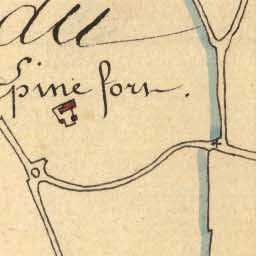 du
Spine fort.